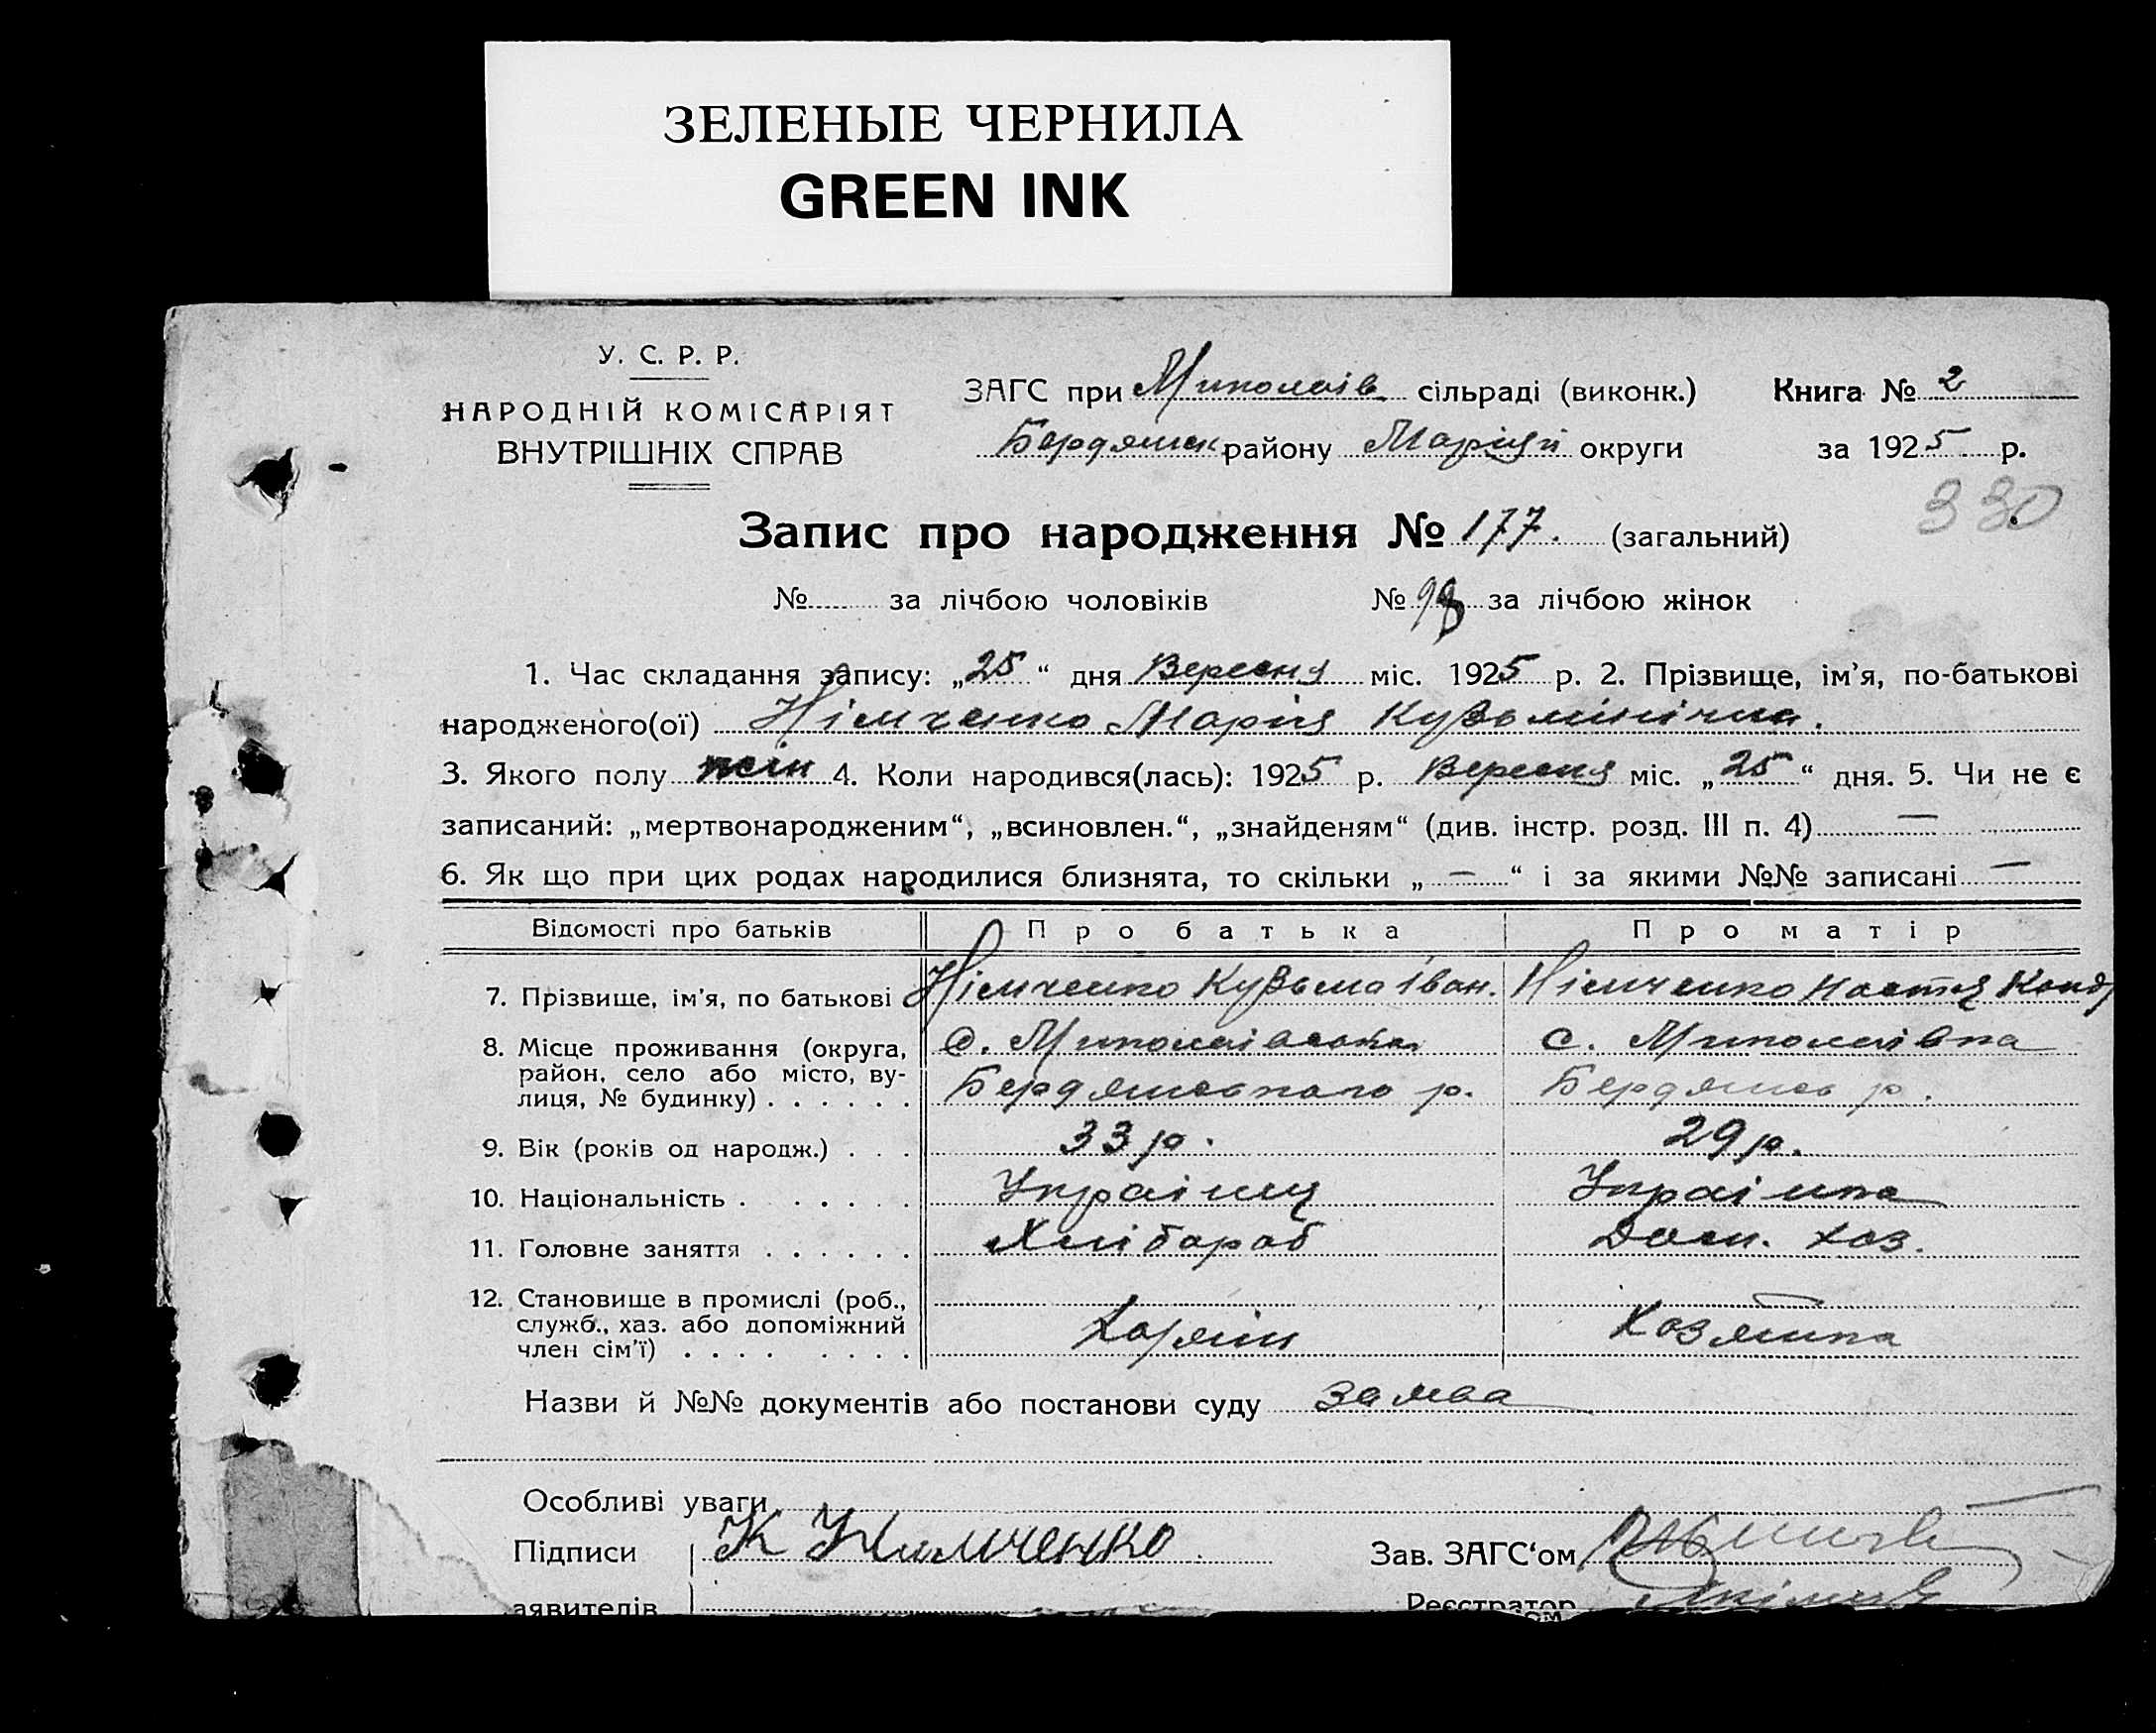 ЗЕЛЕНЫЕ ЧЕРНИЛА
GREEN INK
У. С. Р. Р.
НАРОДНІЙ КОМІСАРІЯТ
ВНУТРІШНІХ СПРАВ
ЗАГС при Миколаїв сільраді (виконк.) Книга № 2
Бердянськ району Маріюп округи за 1925 р.
330
Запис про народження № 177. (загальний)
№ за лічбою чоловіків № 98 за лічбою жінок
1. Час складання запису: „25“ дня Вересня міс. 1925 р. 2. Прізвище, ім'я, по-батькові
народженого(ої) Німченко Марія Кузьмінічна.
3. Якого полу жін 4. Коли народився(лась): 1925 р. Вересня міс. „25“ дня. 5. Чи не є
записаний: „мертвонародженим“, „всиновлен.“, „знайденям“ (див. інстр. розд. III п. 4) —
6. Як що при цих родах народилися близнята, то скільки „—“ і за якими №№ записані —
Відомості про батьків Про батька Про матір
7. Прізвище, ім'я, по батькові Німченко Кузьма Іван. Німченко Настя Конд
8. Місце проживання (округа, с. с. Миколаївка
район, село або місто, ву- Бердянського р. Бердянсь р.
лиця, № будинку)
9. Вік (років од народж.) 33 р. 29 р.
10. Національність Україець Українка
11. Головне заняття Хлібороб Дом. хоз.
12. Становище в промислі (роб.,
служб., хаз. або допоміжний Хозяїн Хозяйка
член сім'ї)
Назви й №№ документів або постанови суду заява
Особливі уваги
Підписи К Нимченко Зав. ЗАГС'ом
аявителів Реєстратор